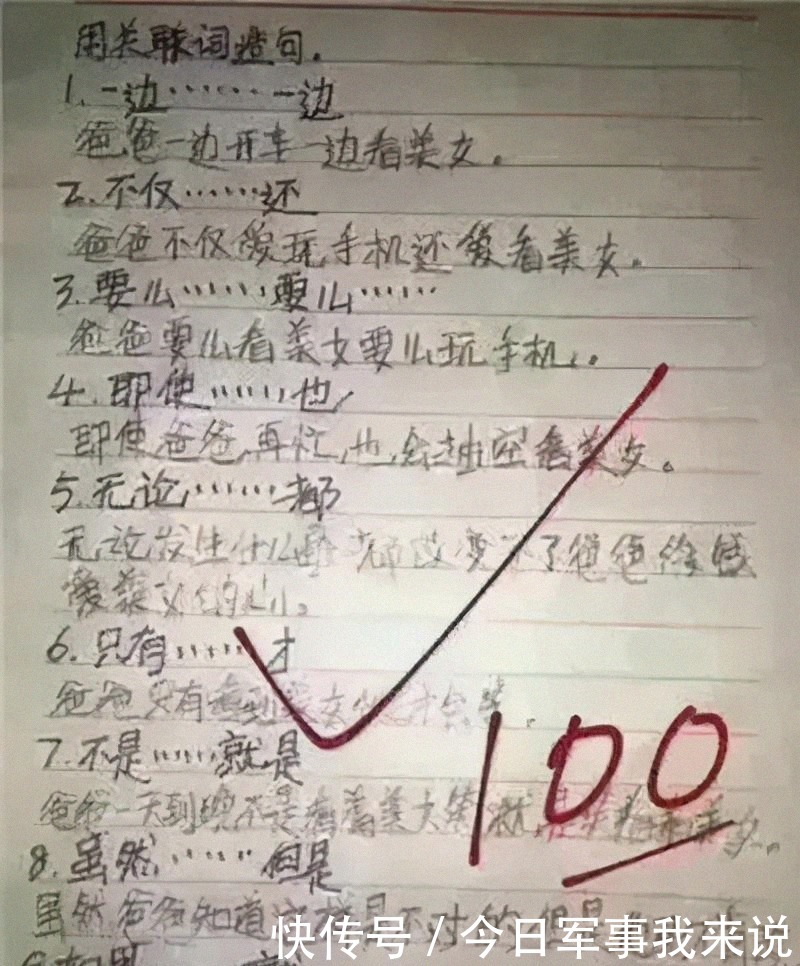 用关联词造句.
1.一边……一边
爸爸一边开车一边看美女。
2.不仅……还
爸爸不仅爱玩手机还爱看美女。
3.要么……要么……
爸爸要么看美女要么玩手机。
4.即使……也
即使爸爸再忙,也会抽空看美女。
5.无论……都
无论发生什么 都改变不了爸爸
爱美女的心。
6.只有……才
爸爸只有看到美女 才会笑.
7.不是……就是
爸爸一天到晚不是看着美女笑就是 美女。
8.虽然……但是
虽然爸爸知道这样是不对的,但是
如果
100
快传号/今日军事我来说